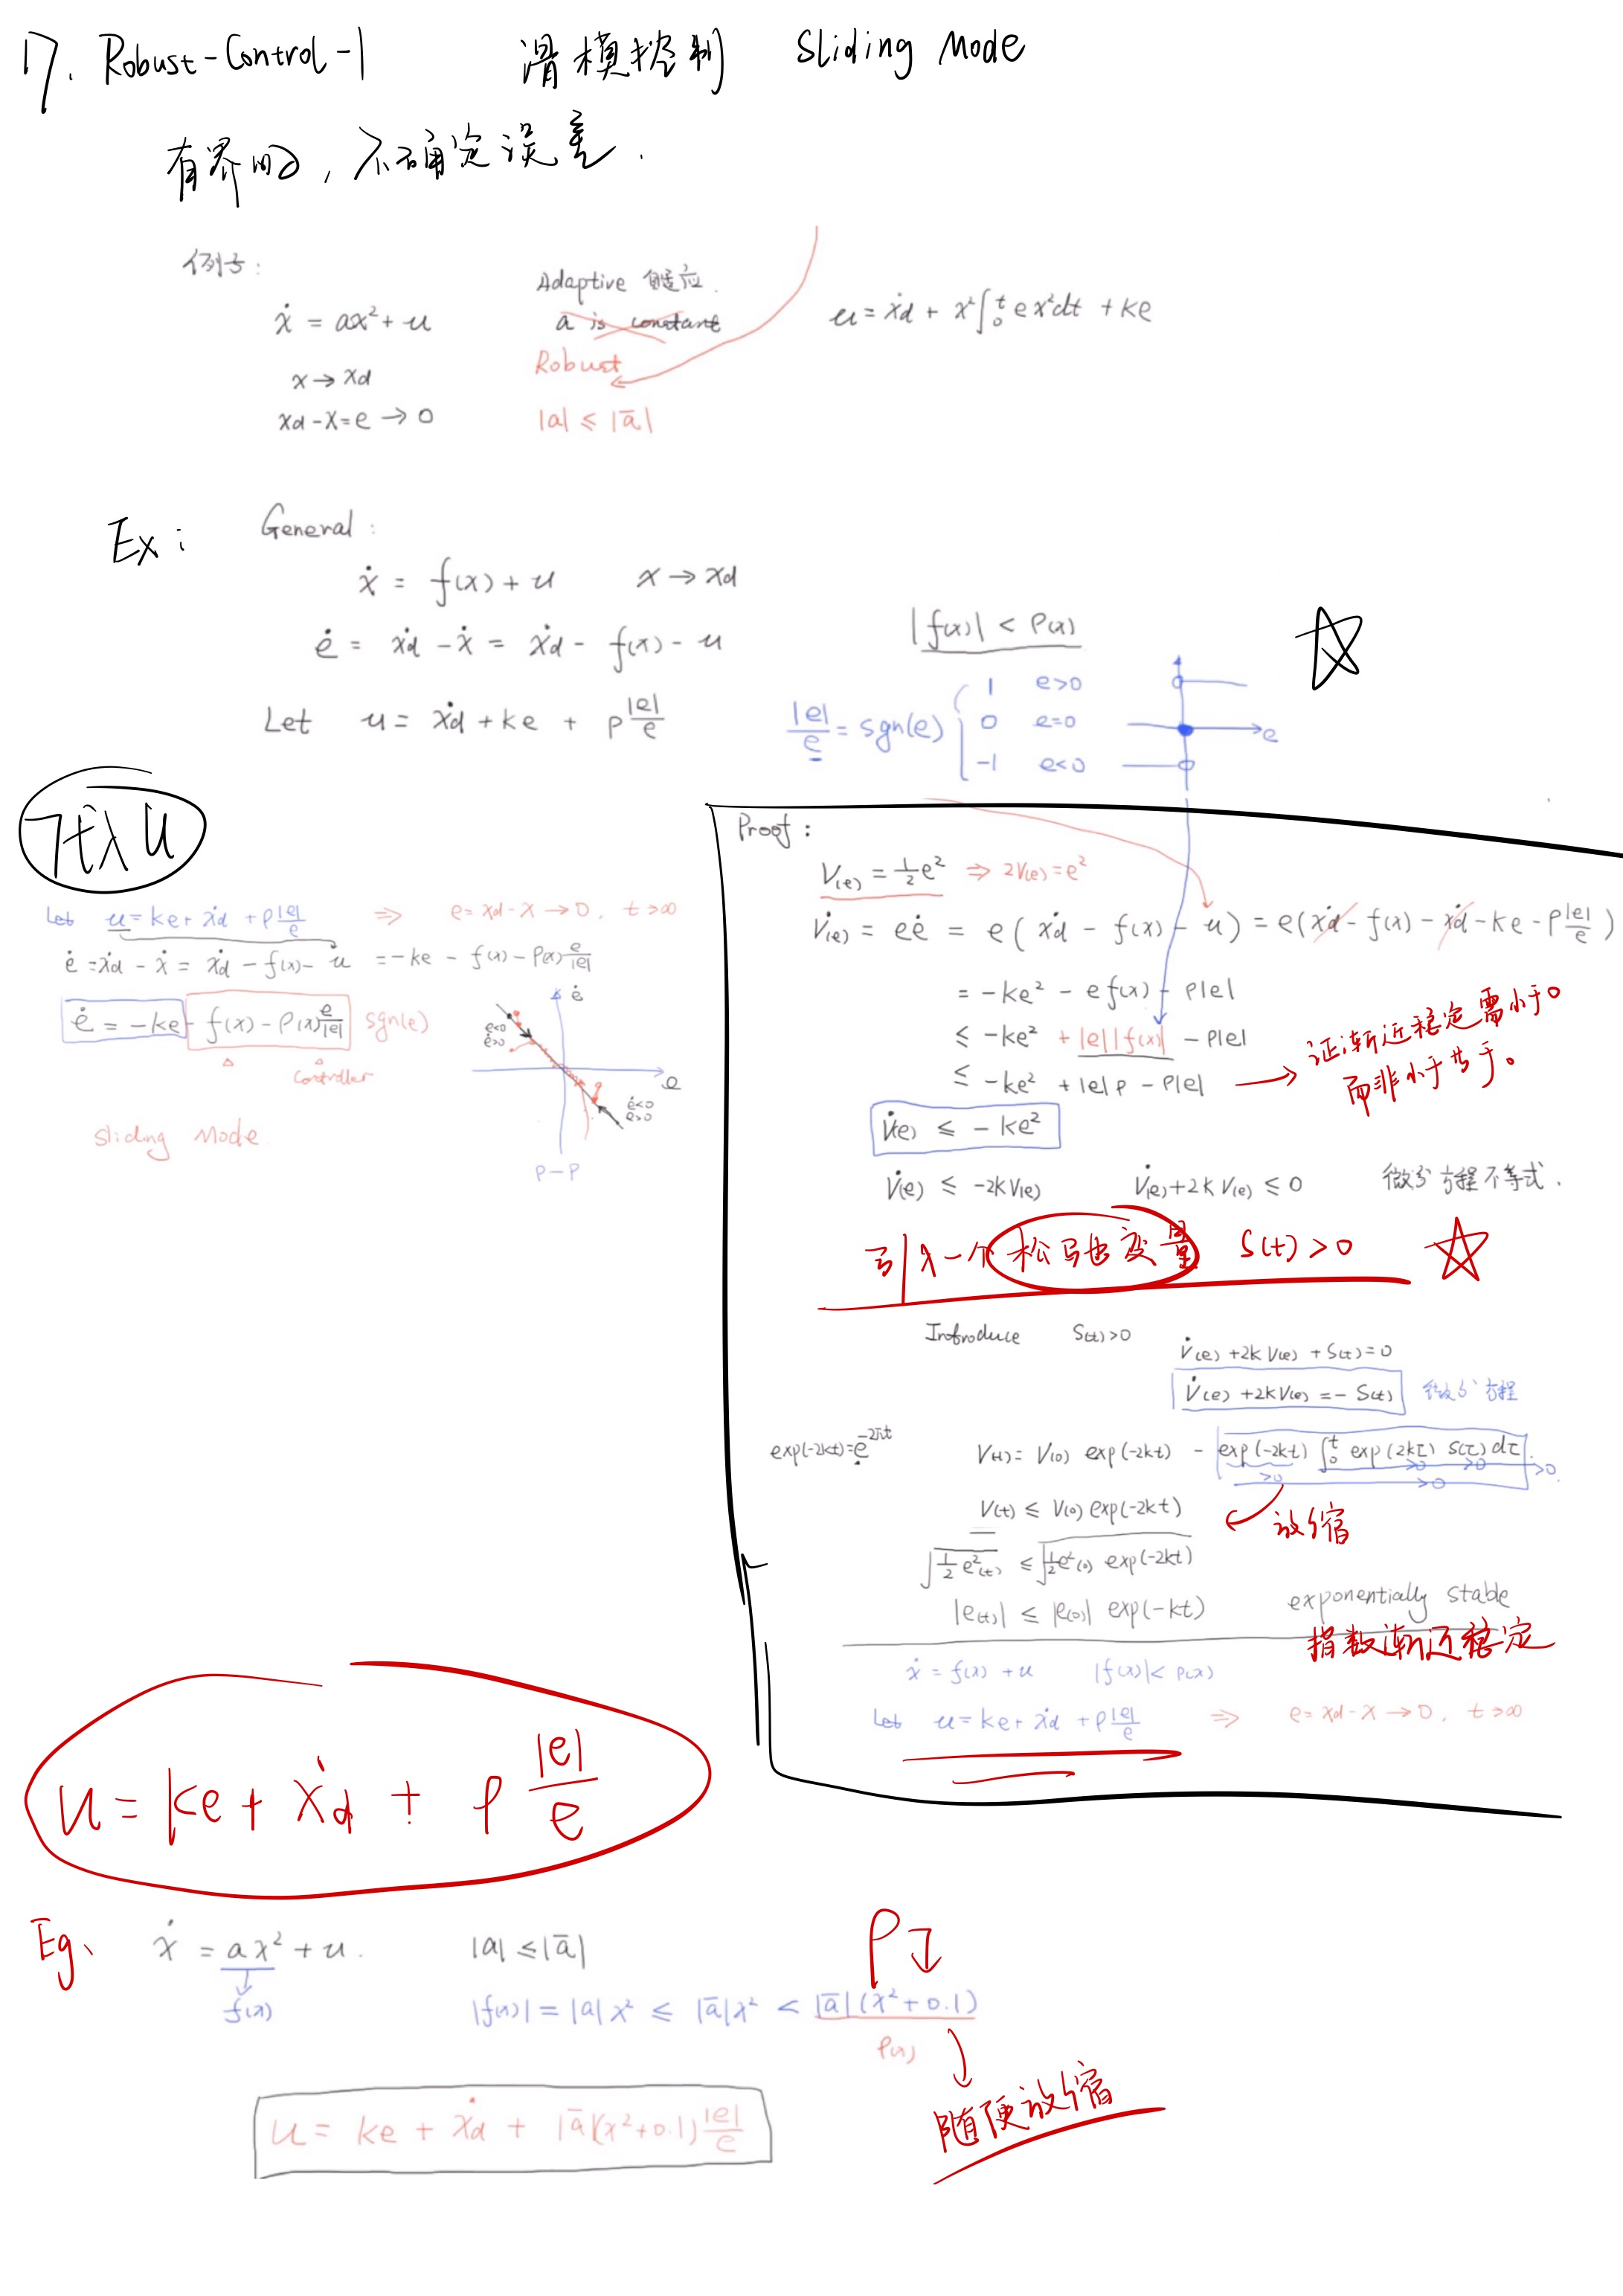 17. Robust-Control-1 滑模控制 Sliding Mode
有界的, 不确定误差.
例子:
Adaptive 自适应.
ẋ = ax² + u
a is constant
u = ẋd + x²∫₀ᵗ e x² dt + ke
x → xd
Robust
xd - x = e → 0
|a| ≤ |ā|
Ex: General:
ẋ = f(x) + u x → xd
ė = ẋd - ẋ = ẋd - f(x) - u
|f(x)| < ρ(x)
Let u = ẋd + ke + ρ|e|/e
|e|/e = sgn(e) { 1 e>0
0 e=0
-1 e<0
e
代入 u
Let u = ke + ẋd + ρ|e|/e ⇒ e = xd - x → 0, t→∞
ė = ẋd - ẋ = ẋd - f(x) - u = -ke - f(x) - ρ(x) e/|e|
ė = -ke - f(x) - ρ(x) e/|e| sgn(e)
Controller
Sliding Mode.
ė
e<0
ė>0
e
ė<0
e>0
P-P
Proof:
V(e) = ½e² ⇒ 2V(e) = e²
V̇(e) = eė = e(ẋd - f(x) - u) = e(ẋd - f(x) - ẋd - ke - ρ|e|/e)
= -ke² - e f(x) - ρ|e|
≤ -ke² + |e||f(x)| - ρ|e|
≤ -ke² + |e|ρ - ρ|e|
证渐近稳定需小于0
而非小于等于。
V̇(e) ≤ -ke²
V̇(e) ≤ -2kV(e) V̇(e) + 2kV(e) ≤ 0 微分方程不等式.
引入一个松弛变量 S(t) > 0
Introduce S(t) > 0
V̇(e) + 2kV(e) + S(t) = 0
V̇(e) + 2kV(e) = -S(t) 微分方程
exp(-2kt) = e^-2kt
V(t) = V(0) exp(-2kt) - exp(-2kt) ∫₀ᵗ exp(2kτ) S(τ) dτ.
>0 >0 >0 >0 >0.
V(t) ≤ V(0) exp(-2kt)
放缩
√(½e²(t)) ≤ √(½e²(0) exp(-2kt))
|e(t)| ≤ |e(0)| exp(-kt) exponentially stable
指数渐近稳定
ẋ = f(x) + u |f(x)| < ρ(x)
Let u = ke + ẋd + ρ|e|/e ⇒ e = xd - x → 0, t→∞
u = ke + ẋd + ρ |e|/e
Eg. ẋ = ax² + u. |a| ≤ |ā|
ρ
f(x)
|f(x)| = |a|x² ≤ |ā|x² < |ā|(x²+0.1)
ρ(x)
随便放缩
u = ke + ẋd + |ā|(x²+0.1)|e|/e